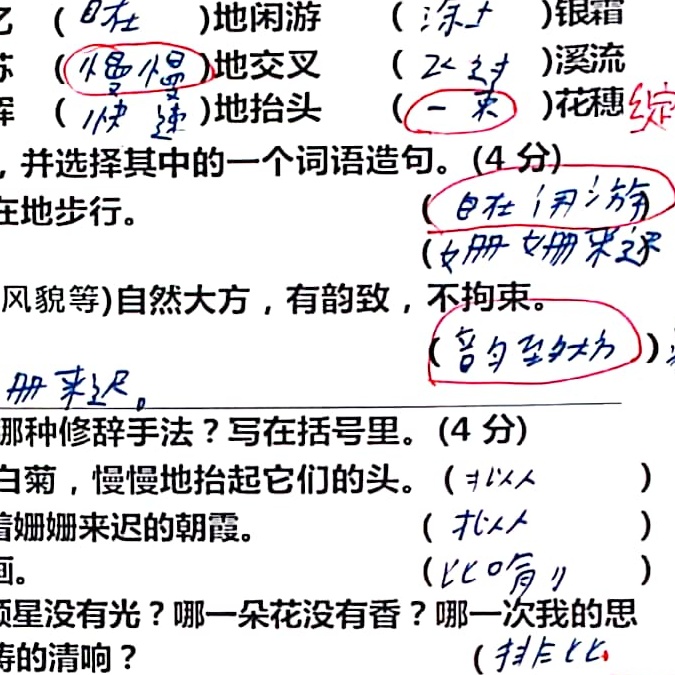 忆 ( 自在 )地闲游 ( 涂上 )银霜
苏 ( 慢慢 )地交叉 ( )溪流
辉 ( 快速 )地抬头 ( 一束 )花穗 绽
,并选择其中的一个词语造句。(4 分)
在地步行。 ( 自在闲游 )
( 姗姗来迟
风貌等)自然大方,有韵致,不拘束。
( 大方 )
姗来迟。
哪种修辞手法?写在括号里。(4 分)
白菊,慢慢地抬起它们的头。 ( 拟人 )
着姗姗来迟的朝霞。 ( 拟人 )
画。 ( 比喻 )
颗星没有光?哪一朵花没有香?哪一次我的思
涛的清响? ( 排比